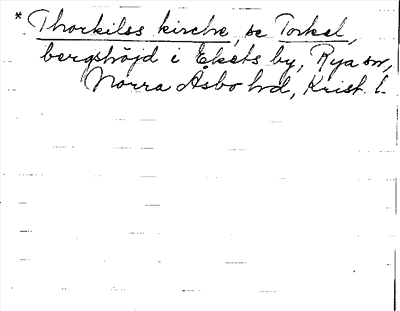 * Thorkilss kirche, se Torkel,
bergshöjd i Ekets by, Rya sn,
Norra Åsbo hd, Krist. l.